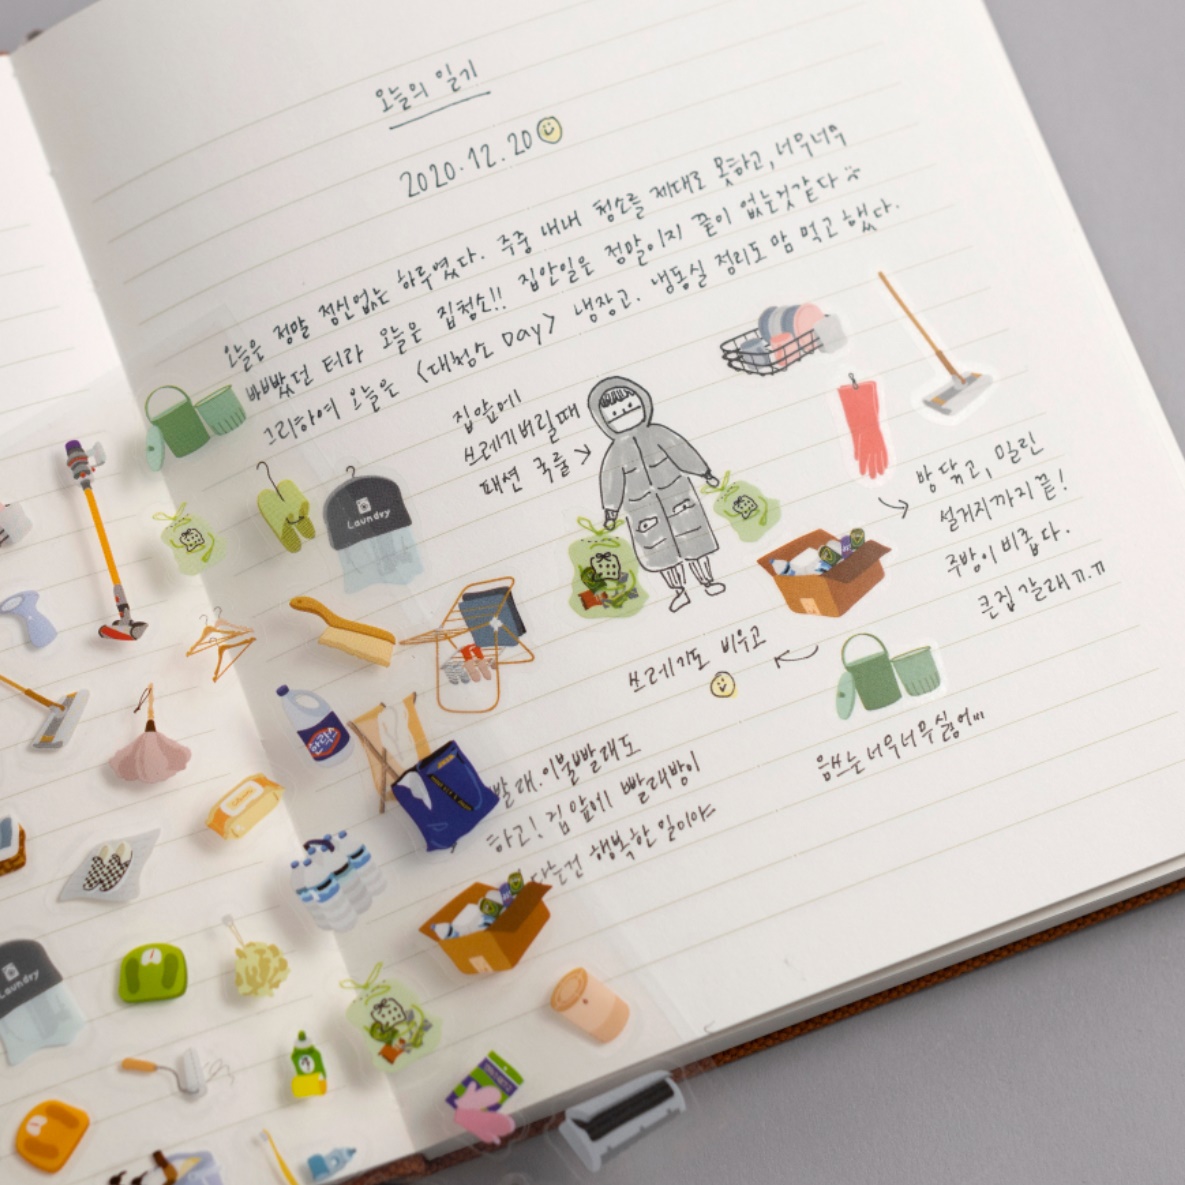 오늘의 일기
2020.12.20
오늘은 정말 정신없는 하루였다. 주중 내내 청소를 제대로 못하고, 너무너무
바빴던 터라 오늘은 집청소!! 집안일은 정말이지 끝이 없는것같다
그리하여 오늘은 <대청소 Day> 냉장고. 냉동실 정리도 맘 먹고 했다.
집앞에
쓰레기버릴때
패션 국룰
방 닦고, 밀린
설거지까지 끝!
주방이 비좁다.
큰집 갈래ㅠ.ㅠ
쓰레기도 비우고
음쓰는 너무너무 싫어
빨래. 이불빨래도
하고! 집 앞에 빨래방이
있는건 행복한 일이야
Laundry
한락스
Laundry